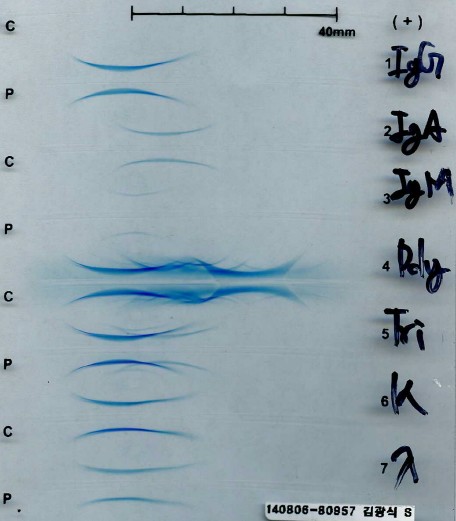 C
(+)
40mm
1 IgG
P
2 IgA
C
3 IgM
P
4 Poly
C
5 Tri
P
6 K
C
7 λ
P
140806-80957 김광식 S